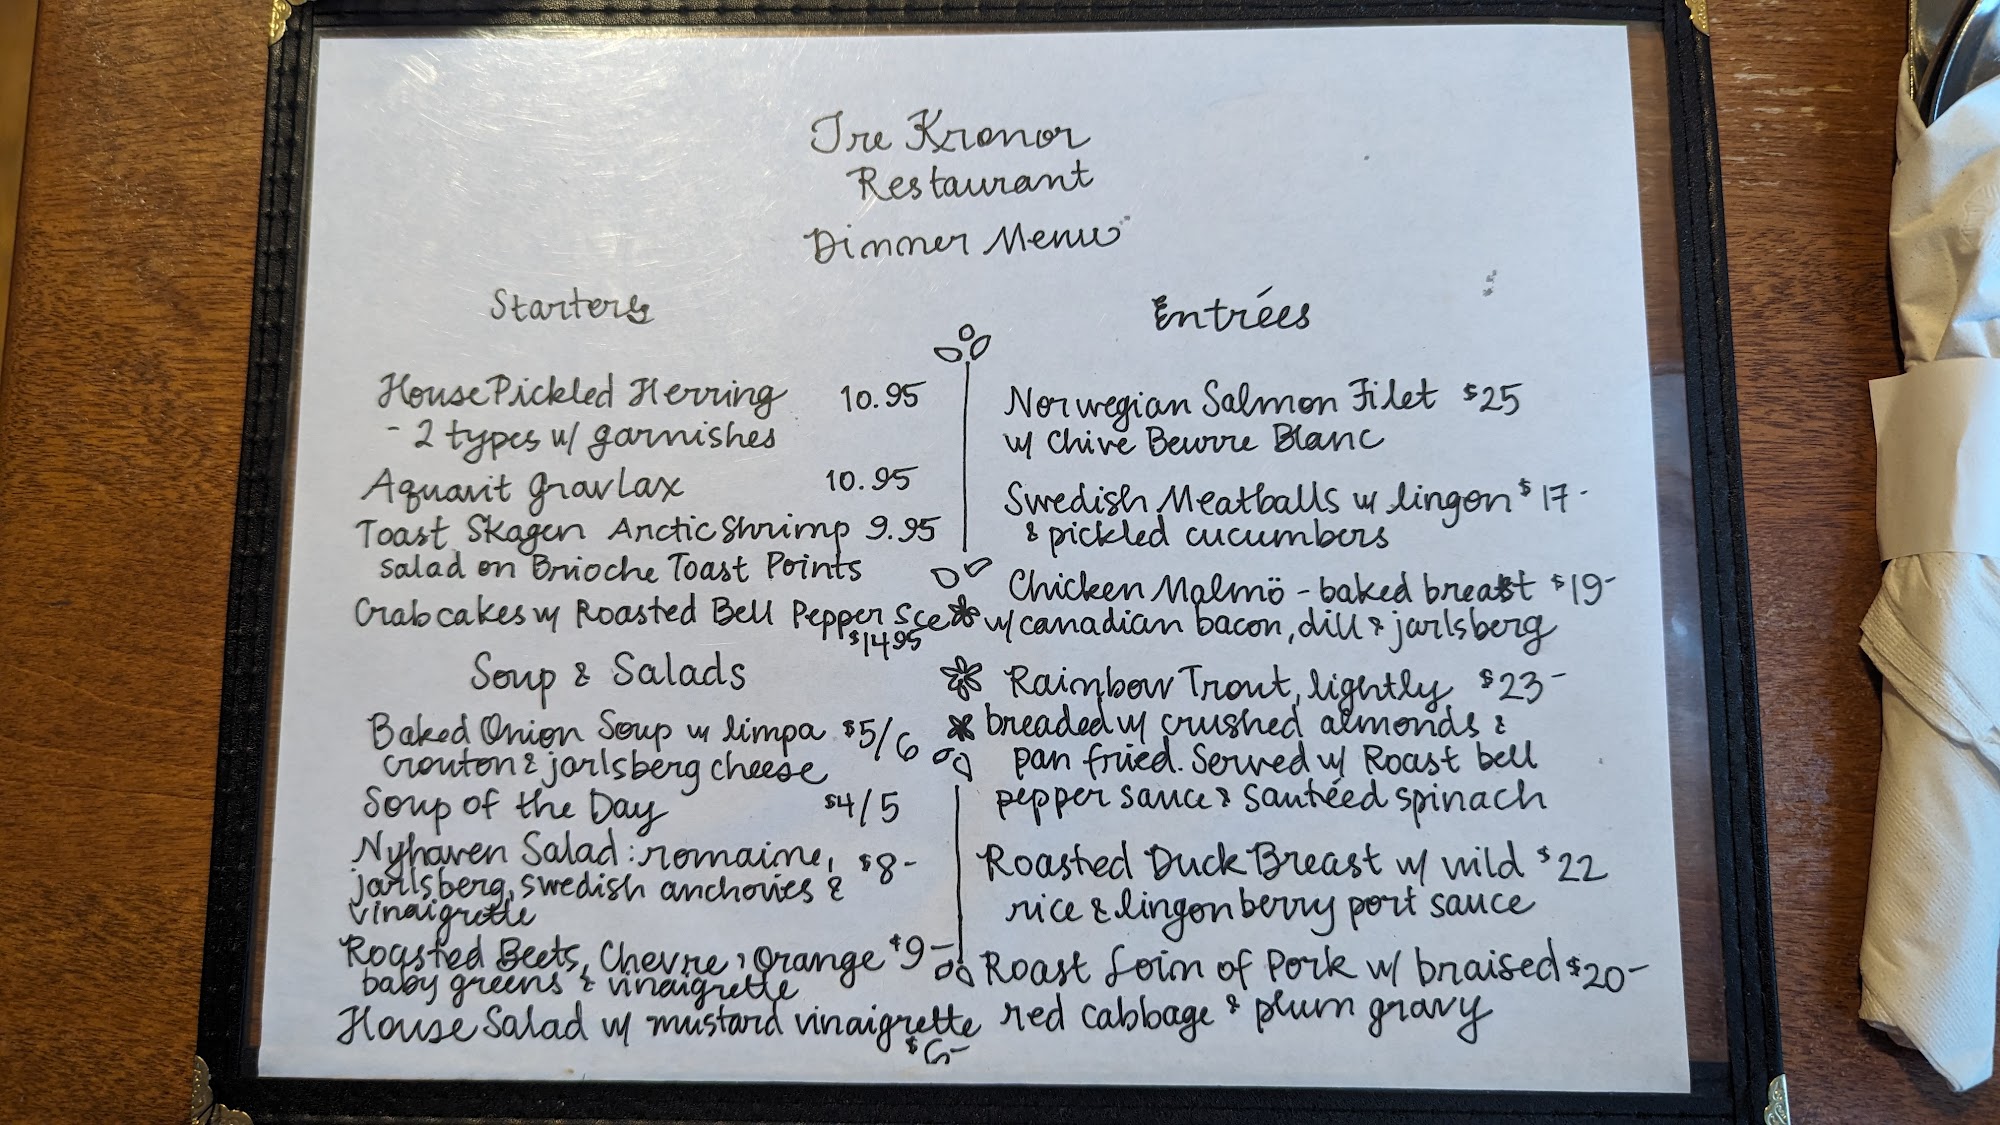 Tre Kronor
Restaurant
Dinner Menu
Starters
House Pickled Herring 10.95
- 2 types w/ garnishes
Aquavit gravlax 10.95
Toast Skagen Arctic Shrimp 9.95
salad on Brioche Toast Points
Crabcakes w/ Roasted Bell Pepper Sce
$14.95
Soup & Salads
Baked Onion Soup w/ limpa $5/6
crouton & jarlsberg cheese
Soup of the Day $4/5
Nyhaven Salad: romaine, $8-
jarlsberg, swedish anchovies &
vinaigrette
Roasted Beets, Chevre, Orange $9-
baby greens & vinaigrette
House Salad w/ mustard vinaigrette
$6-
Entrées
Norwegian Salmon Filet $25
w/ Chive Beurre Blanc
Swedish Meatballs w/ lingon $17-
& pickled cucumbers
Chicken Malmö - baked breast $19-
w/ canadian bacon, dill & jarlsberg
Rainbow Trout, lightly $23-
breaded w/ crushed almonds &
pan fried. Served w/ Roast bell
pepper sauce & sautéed spinach
Roasted Duck Breast w/ wild $22
rice & lingonberry port sauce
Roast Loin of Pork w/ braised $20-
red cabbage & plum gravy